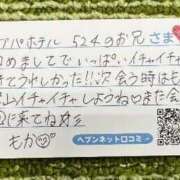 プパホテル 524のお兄さま
めましてでいっぱいイチャイチャ
てうれしかった!!次会う時はも
山イチャイチャしようねまた会
に来てね
もか
ヘブンネット口コミ